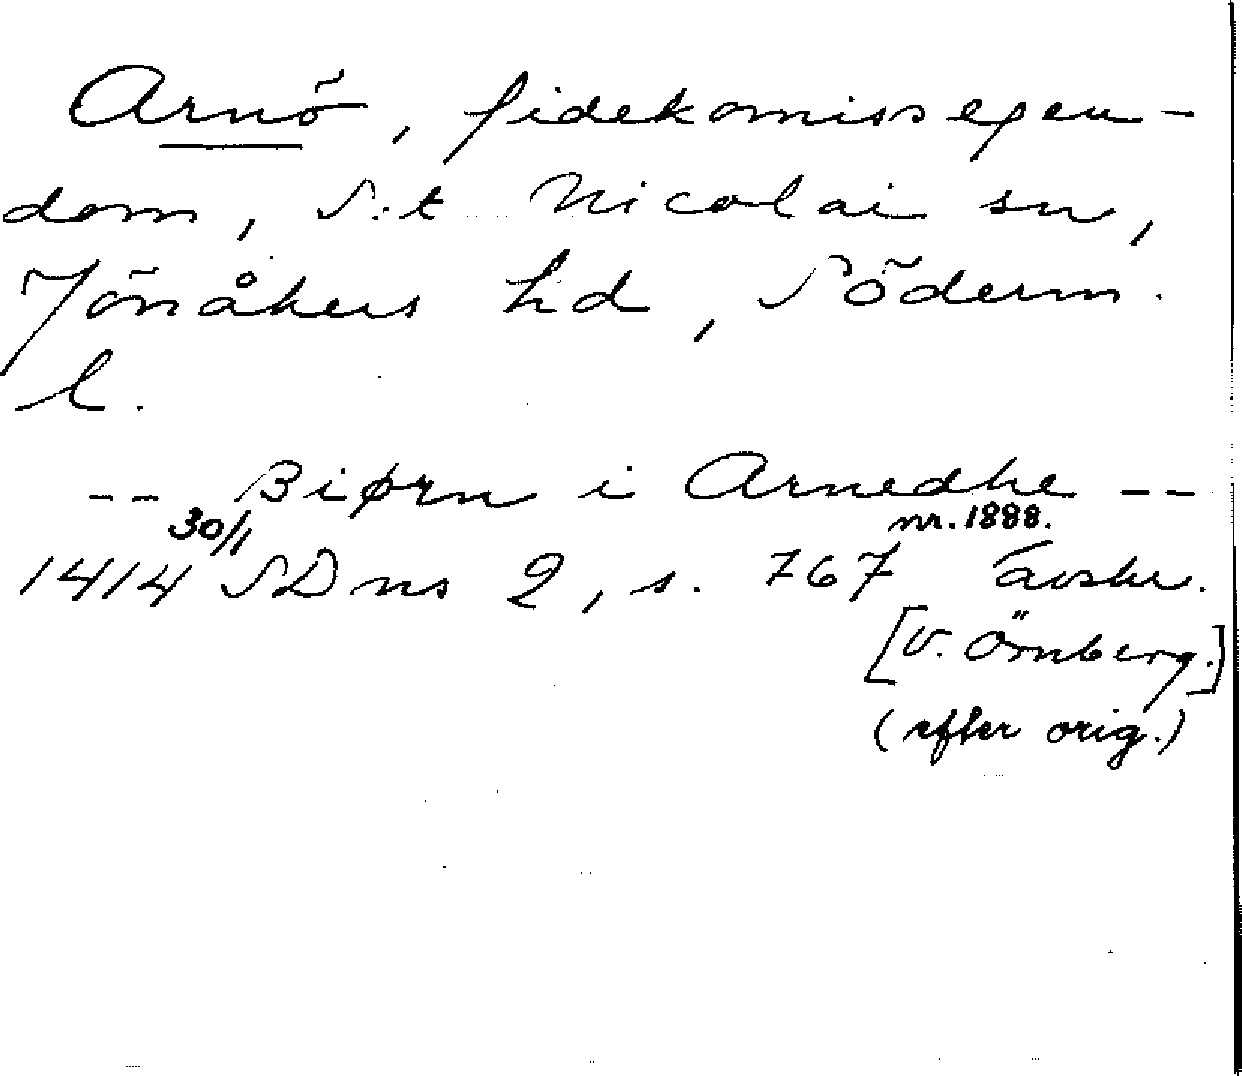 Arnö, fidekomissegen-
dom, S:t Nicolai sn,
Jönåkers hd, Söderm.
l.
-- Biørn i Arnedhe --
30/1 nr. 1888.
1414 SDns 2, s. 767 avskr.
[V. Örnberg.]
(efter orig.)